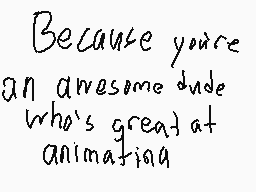 Because you're
an awesome dude
who's great at
animating